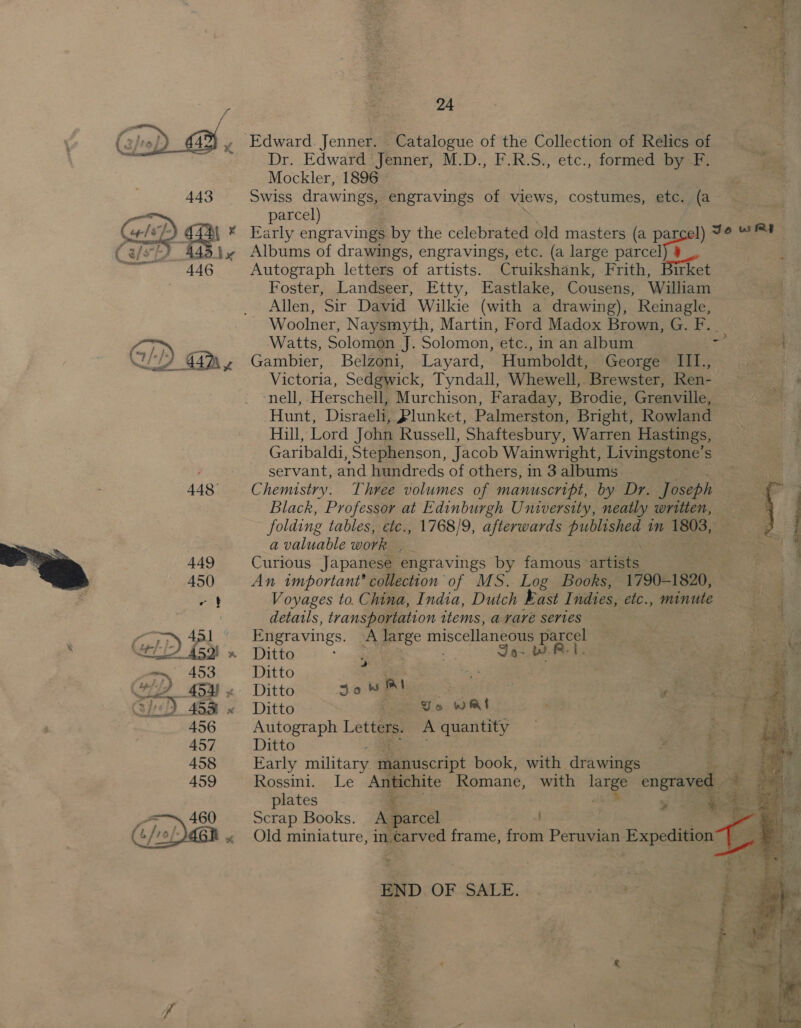 24
(2/10/-) 442 x Edward Jenner. Catalogue of the Collection of Relics of
Dr. Edward Jenner, M.D., F.R.S., etc., formed by F.
Mockler, 1896
443 Swiss drawings, engravings of views, costumes, etc. (a
parcel)
444 x Early engravings by the celebrated old masters (a parcel)
445 x Albums of drawings, engravings, etc. (a large parcel)
446 Autograph letters of artists. Cruikshank, Frith, Birket
Foster, Landseer, Etty, Eastlake, Cousens, William
Allen, Sir David Wilkie (with a drawing), Reinagle,
Woolner, Naysmyth, Martin, Ford Madox Brown, G. F.
Watts, Solomon J. Solomon, etc., in an album
447 x Gambier, Belzoni, Layard, Humboldt, George III.,
Victoria, Sedgwick, Tyndall, Whewell, Brewster, Ren-
nell, Herschell, Murchison, Faraday, Brodie, Grenville,
Hunt, Disraeli, Plunket, Palmerston, Bright, Rowland
Hill, Lord John Russell, Shaftesbury, Warren Hastings,
Garibaldi, Stephenson, Jacob Wainwright, Livingstone's
servant, and hundreds of others, in 3 albums
448 Chemistry. Three volumes of manuscript, by Dr. Joseph
Black, Professor at Edinburgh University, neatly written,
folding tables, etc., 1768/9, afterwards published in 1803,
a valuable work
449 Curious Japanese engravings by famous artists
450 An important collection of MS. Log Books, 1790–1820,
Voyages to China, India, Dutch East Indies, etc., minute
details, transportation items, a rare series
451 Engravings. A large miscellaneous parcel
452 x Ditto
453 Ditto
454 x Ditto
455 x Ditto
456 Autograph Letters. A quantity
457 Ditto
458 Early military manuscript book, with drawings
459 Rossini. Le Antichite Romane, with large engraved
plates
460 Scrap Books. A parcel
461 x Old miniature, in carved frame, from Peruvian Expedition
END OF SALE.